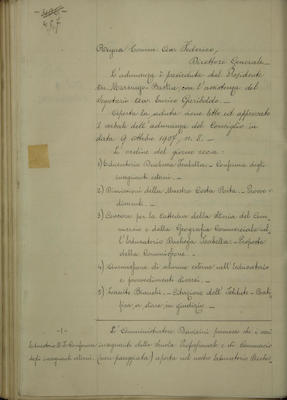 457
Direttore Generale.
L'adunanza è presieduta dal Presidente
con l'assistenza del
Segretario Avv. Enrico
Aperta la seduta viene letto ed approvato
il verbale dell'adunanza del Consiglio in
data 9 ottobre 1907, n. 2. —
L'ordine del giorno reca:
1) Educatorio Duchessa Isabella - Conferma degli
insegnanti esterni. —
2) Dimissioni della Maestra Costa - Provve-
dimenti. —
3) Concorso per la Cattedra della Storia del Com-
mercio e della Geografia Commerciale nel-
l'Educatorio Duchessa Isabella - Proposta
della Commissione. —
4) Ammissione di alunne esterne nell'Educatorio
e provvedimenti diversi. —
5) Bianchi - Citazione dell'Istituto -
a stare in giudizio. —
-1-
L'Amministratore premesso che i vari
Educatorio D. I. Conferma insegnanti della Scuola Professionale e di Commercio
degli insegnanti esterni. (non pareggiata) aperta nel nostro Educatorio